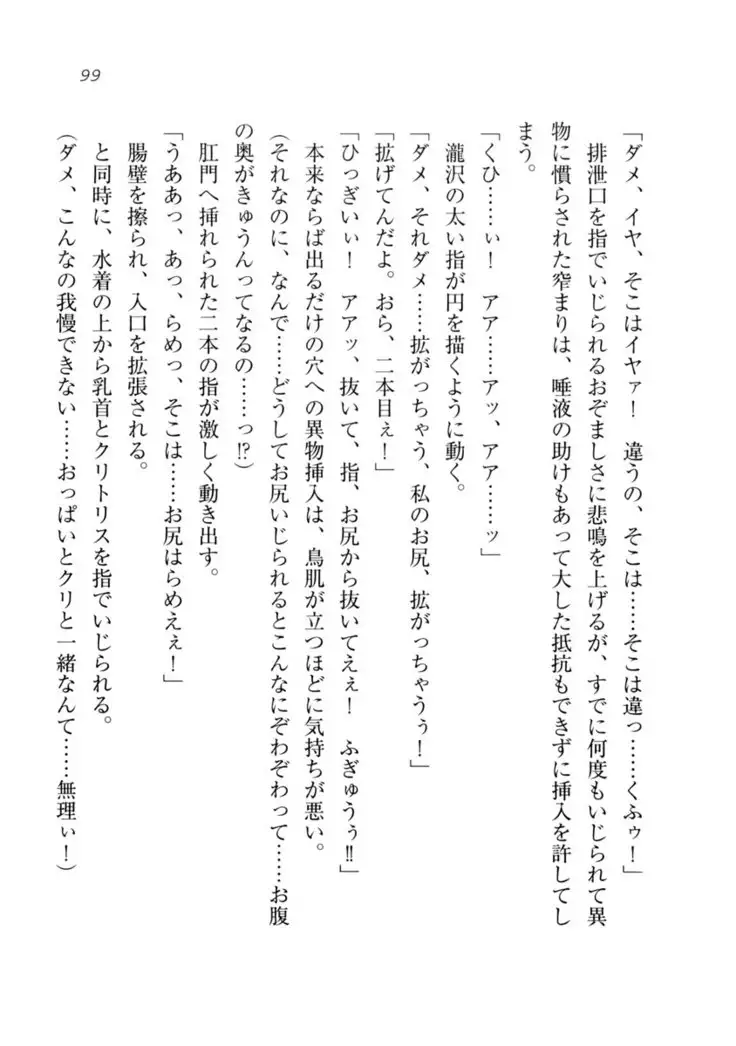 99
「ダメ、イヤ、そこはイヤァ！　違うの、そこは……そこは違っ……くふゥ！」
排泄口を指でいじられるおぞましさに悲鳴を上げるが、すでに何度もいじられて異
物に慣らされた窄まりは、唾液の助けもあって大した抵抗もできずに挿入を許してし
まう。
「くひ……ぃ！　アア……アッ、アア……ッ」
瀧沢の太い指が円を描くように動く。
「ダメ、それダメ……拡がっちゃう、私のお尻、拡がっちゃうぅ！」
「拡げてんだよ。おら、二本目ぇ！」
「ひっぎいぃ！　アアッ、抜いて、指、お尻から抜いてえぇ！　ふぎゅうぅ!!」
本来ならば出るだけの穴への異物挿入は、鳥肌が立つほどに気持ちが悪い。
（それなのに、なんで……どうしてお尻いじられるとこんなにぞわぞわって……お腹
の奥がきゅうんってなるの……っ!?）
肛門へ挿れられた二本の指が激しく動き出す。
「うああっ、あっ、らめっ、そこは……お尻はらめえぇ！」
腸壁を擦られ、入口を拡張される。
と同時に、水着の上から乳首とクリトリスを指でいじられる。
（ダメ、こんなの我慢できない……おっぱいとクリと一緒なんて……無理ぃ！）